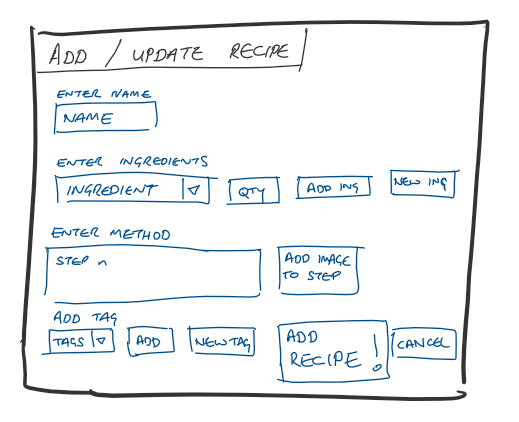 ADD / UPDATE RECIPE
ENTER NAME
NAME
ENTER INGREDIENTS
INGREDIENT QTY ADD ING NEW ING
ENTER METHOD
STEP n
ADD IMAGE
TO STEP
ADD TAG
TAGS ADD NEW TAG
ADD
RECIPE !
CANCEL